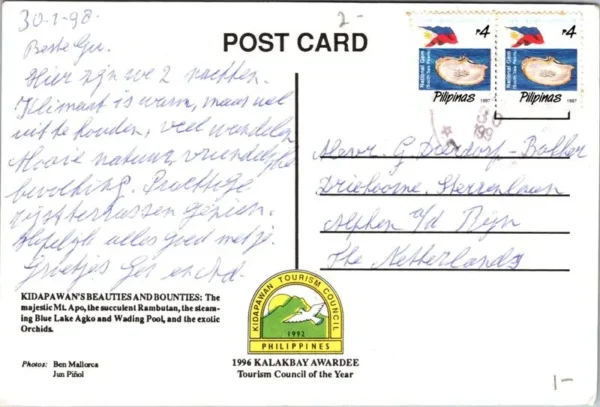 30-1-98.
2-
POST CARD
Beste Gu.
Hier zijn we 2 nachten.
Klimaat is warm, maar wel
uit te houden, veel wandelen
Mooie natuur, vriendelijke
bevolking. Prachtige
rijstterrassen gezien.
Hopelijk alles goed met je.
Groetjes Ger en Ad.
KIDAPAWAN'S BEAUTIES AND BOUNTIES: The
majestic Mt. Apo, the succulent Rambutan, the steam-
ing Blue Lake Agko and Wading Pool, and the exotic
Orchids.
Photos: Ben Mallorca
Jun Piñol
KIDAPAWAN TOURISM COUNCIL
1992
PHILIPPINES
1996 KALAKBAY AWARDEE
Tourism Council of the Year
P4
National Gem
South Sea Pearls
Pilipinas
1997
P4
National Gem
South Sea Pearls
Pilipinas
1997
Mevr. G. Dierdorp-Bakker
Driehoorne
Alphen a/d Rijn
The Netherlands
1-